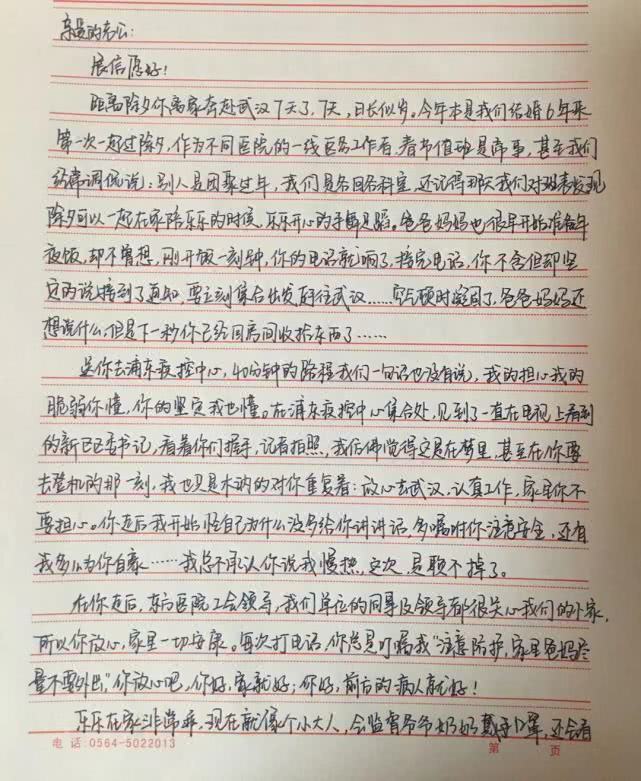 亲爱的老公：
展信愿好！
距离除夕你离家奔赴武汉7天了，7天，日长似岁。今年本是我们结婚6年来
第一次一起过除夕，作为不同医院的一线医务工作者，春节值班是常事，甚至我们
经常调侃说：别人是团聚过年，我们是各回各科室，还记得那天我们对班表发现
除夕可以一起在家陪乐乐的时候，乐乐开心的手舞足蹈。爸爸妈妈也很早开始准备年
夜饭，却不曾想，刚开饭一刻钟，你的电话就响了，接完电话，你不舍但却坚
定的说接到了通知，要立刻集合出发前往武汉……空气顿时凝固了，爸爸妈妈还
想说什么，但是下一秒你已经回房间收拾东西了……
送你去浦东疾控中心，40分钟的路程我们一句话也没有说，我的担心我的
脆弱你懂，你的坚定我也懂。在浦东疾控中心集合处，见到了一直在电视上看到
的新区区委书记，看着你们握手，记者拍照，我仿佛觉得这是在梦里，甚至在你要
去登机的那一刻，我也只是木讷的对你重复着：放心去武汉，认真工作，家里你不
要担心。你走后我开始怪自己为什么没多给你讲讲话，多嘱咐你注意安全，还有
我多么为你自豪……我总不承认你说我慢热，这次，是赖不掉了。
在你走后，东方医院工会领导，我们单位的同事及领导都很关心我们的小家，
所以你放心，家里一切安康。每次打电话，你总是叮嘱我“注意防护，家里爸妈尽
量不要外出，”你放心吧，你好，家就好；你好，前方的病人就好！
乐乐在家非常乖，现在就像个小大人，会监督爷爷奶奶戴好口罩，还会有
电话：0564-5022013 第 页